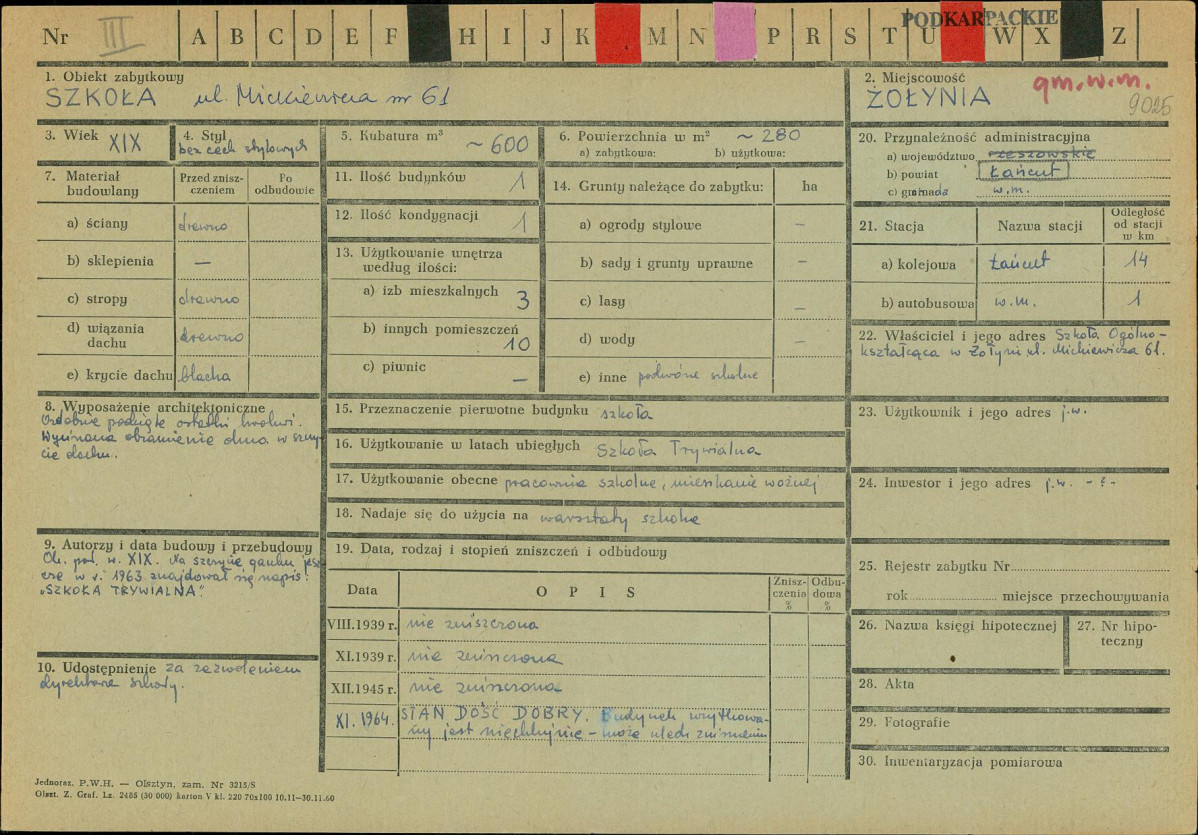 PODKARPACKIE
Nr III A B C D E F H I J K M N P R S T U W X Z
1. Obiekt zabytkowy
SZKOŁA ul. Mickiewicza nr 61
2. Miejscowość
ŻOŁYNIA
gm. w.m.
9025
3. Wiek XIX
4. Styl
bez cech stylowych
5. Kubatura m³ ~600
6. Powierzchnia w m² ~ 280
a) zabytkowa: b) użytkowa:
7. Materiał budowlany
Przed zniszczeniem
Po odbudowie
a) ściany drewno
b) sklepienia —
c) stropy drewno
d) wiązania dachu drewno
e) krycie dachu blacha
8. Wyposażenie architektoniczne
Ozdobnie podcięte ostatki krokwi.
Wycinana obramienie okna w szczy-
cie dachu.
9. Autorzy i data budowy i przebudowy
Ok. poł. w. XIX. Na szczycie ganku jesz-
cze w r. 1963 znajdował się napis:
„SZKOŁA TRYWIALNA".
10. Udostępnienie za zezwoleniem
dyrektora szkoły.
11. Ilość budynków 1
12. Ilość kondygnacji 1
13. Użytkowanie wnętrza
według ilości:
a) izb mieszkalnych 3
b) innych pomieszczeń 10
c) piwnic —
14. Grunty należące do zabytku: ha
a) ogrody stylowe —
b) sady i grunty uprawne —
c) lasy —
d) wody —
e) inne podwórze szkolne
15. Przeznaczenie pierwotne budynku szkoła
16. Użytkowanie w latach ubiegłych Szkoła Trywialna
17. Użytkowanie obecne pracownia szkolna, mieszkanie woźnej
18. Nadaje się do użycia na warsztaty szkolne
19. Data, rodzaj i stopień zniszczeń i odbudowy
Data OPIS Zniszczenia % Odbudowa %
VIII.1939 r. nie zniszczona
XI.1939 r. nie zniszczona
XII.1945 r. nie zniszczona
XI. 1964. STAN DOŚĆ DOBRY. Budynek użytkowa-
ny jest niechlujnie – może ulec zniszczeniu
20. Przynależność administracyjna
a) województwo rzeszowskie
b) powiat Łańcut
c) gromada w.m.
21. Stacja Nazwa stacji Odległość od stacji w km
a) kolejowa Łańcut 14
b) autobusowa w.m. 1
22. Właściciel i jego adres Szkoła Ogólno-
kształcąca w Żołyni ul. Mickiewicza 61.
23. Użytkownik i jego adres j.w.
24. Inwestor i jego adres j.w. - ? -
25. Rejestr zabytku Nr
rok miejsce przechowywania
26. Nazwa księgi hipotecznej
27. Nr hipoteczny
28. Akta
29. Fotografie
30. Inwentaryzacja pomiarowa
Jednoraz. P.W.H. — Olsztyn, zam. Nr 3215/S
Olszt. Z. Graf. Lz. 2455 (30 000) karton V kl. 220 70x100 10.11—30.11.60